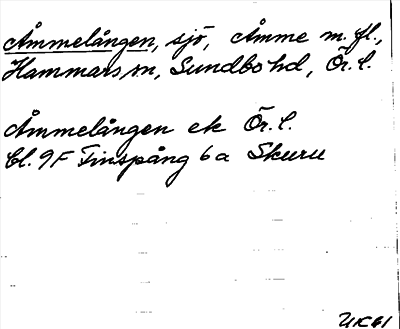 Åmmelången, sjö, Åmme m.fl.,
Hammars sn, Sundbo hd, Ör. l.
Åmmelången ek Ör. l.
Bl. 9F Finspång 6a Skuru
UK61